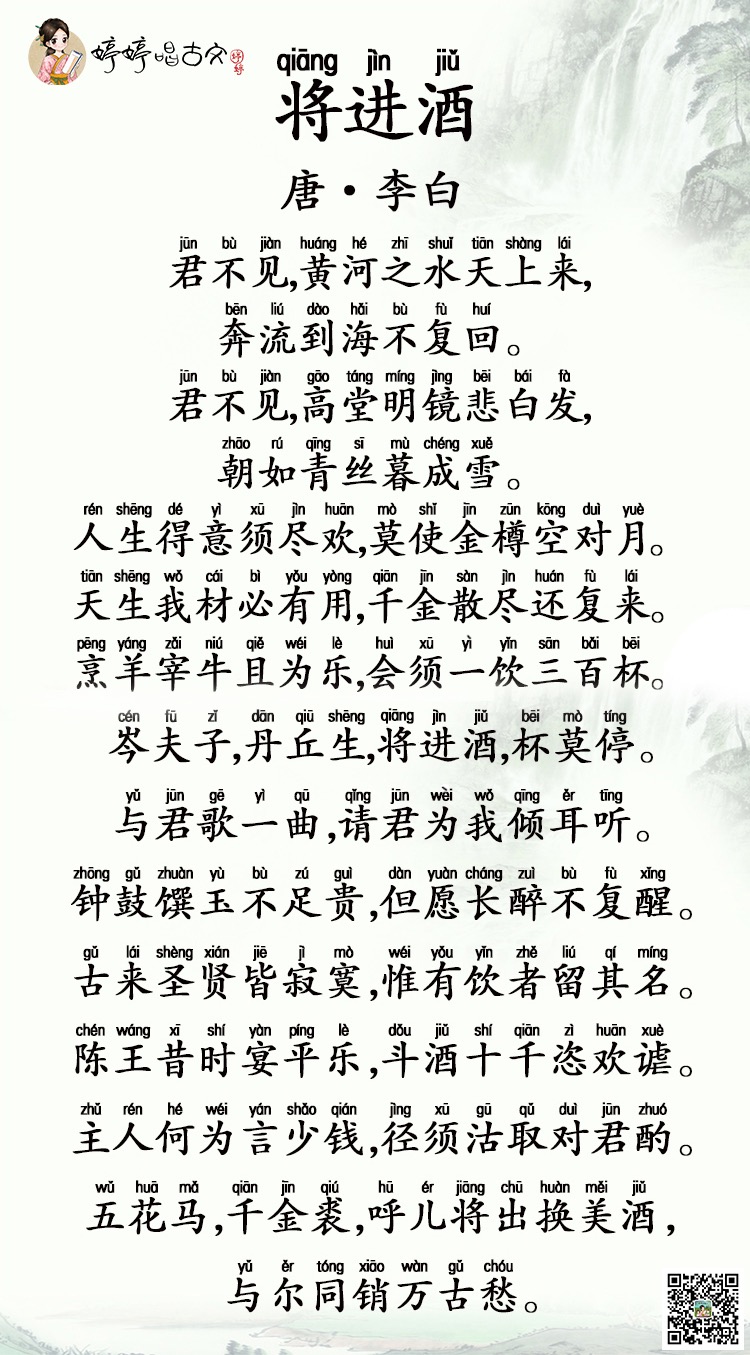 婷婷唱古文
qiāng jìn jiǔ
将进酒
唐·李白
jūn bù jiàn huáng hé zhī shuǐ tiān shàng lái
君不见,黄河之水天上来,
bēn liú dào hǎi bù fù huí
奔流到海不复回。
jūn bù jiàn gāo táng míng jìng bēi bái fà
君不见,高堂明镜悲白发,
zhāo rú qīng sī mù chéng xuě
朝如青丝暮成雪。
rén shēng dé yì xū jìn huān mò shǐ jīn zūn kōng duì yuè
人生得意须尽欢,莫使金樽空对月。
tiān shēng wǒ cái bì yǒu yòng qiān jīn sàn jìn huán fù lái
天生我材必有用,千金散尽还复来。
pēng yáng zǎi niú qiě wéi lè huì xū yì yǐn sān bǎi bēi
烹羊宰牛且为乐,会须一饮三百杯。
cén fū zǐ dān qiū shēng qiāng jìn jiǔ bēi mò tíng
岑夫子,丹丘生,将进酒,杯莫停。
yǔ jūn gē yì qū qǐng jūn wèi wǒ qīng ěr tīng
与君歌一曲,请君为我倾耳听。
zhōng gǔ zhuàn yù bù zú guì dàn yuàn cháng zuì bù fù xǐng
钟鼓馔玉不足贵,但愿长醉不复醒。
gǔ lái shèng xián jiē jì mò wéi yǒu yǐn zhě liú qí míng
古来圣贤皆寂寞,惟有饮者留其名。
chén wáng xī shí yàn píng lè dǒu jiǔ shí qiān zì huān xuè
陈王昔时宴平乐,斗酒十千恣欢谑。
zhǔ rén hé wéi yán shǎo qián jìng xū gū qǔ duì jūn zhuó
主人何为言少钱,径须沽取对君酌。
wǔ huā mǎ qiān jīn qiú hū ér jiāng chū huàn měi jiǔ
五花马,千金裘,呼儿将出换美酒,
yǔ ěr tóng xiāo wàn gǔ chóu
与尔同销万古愁。